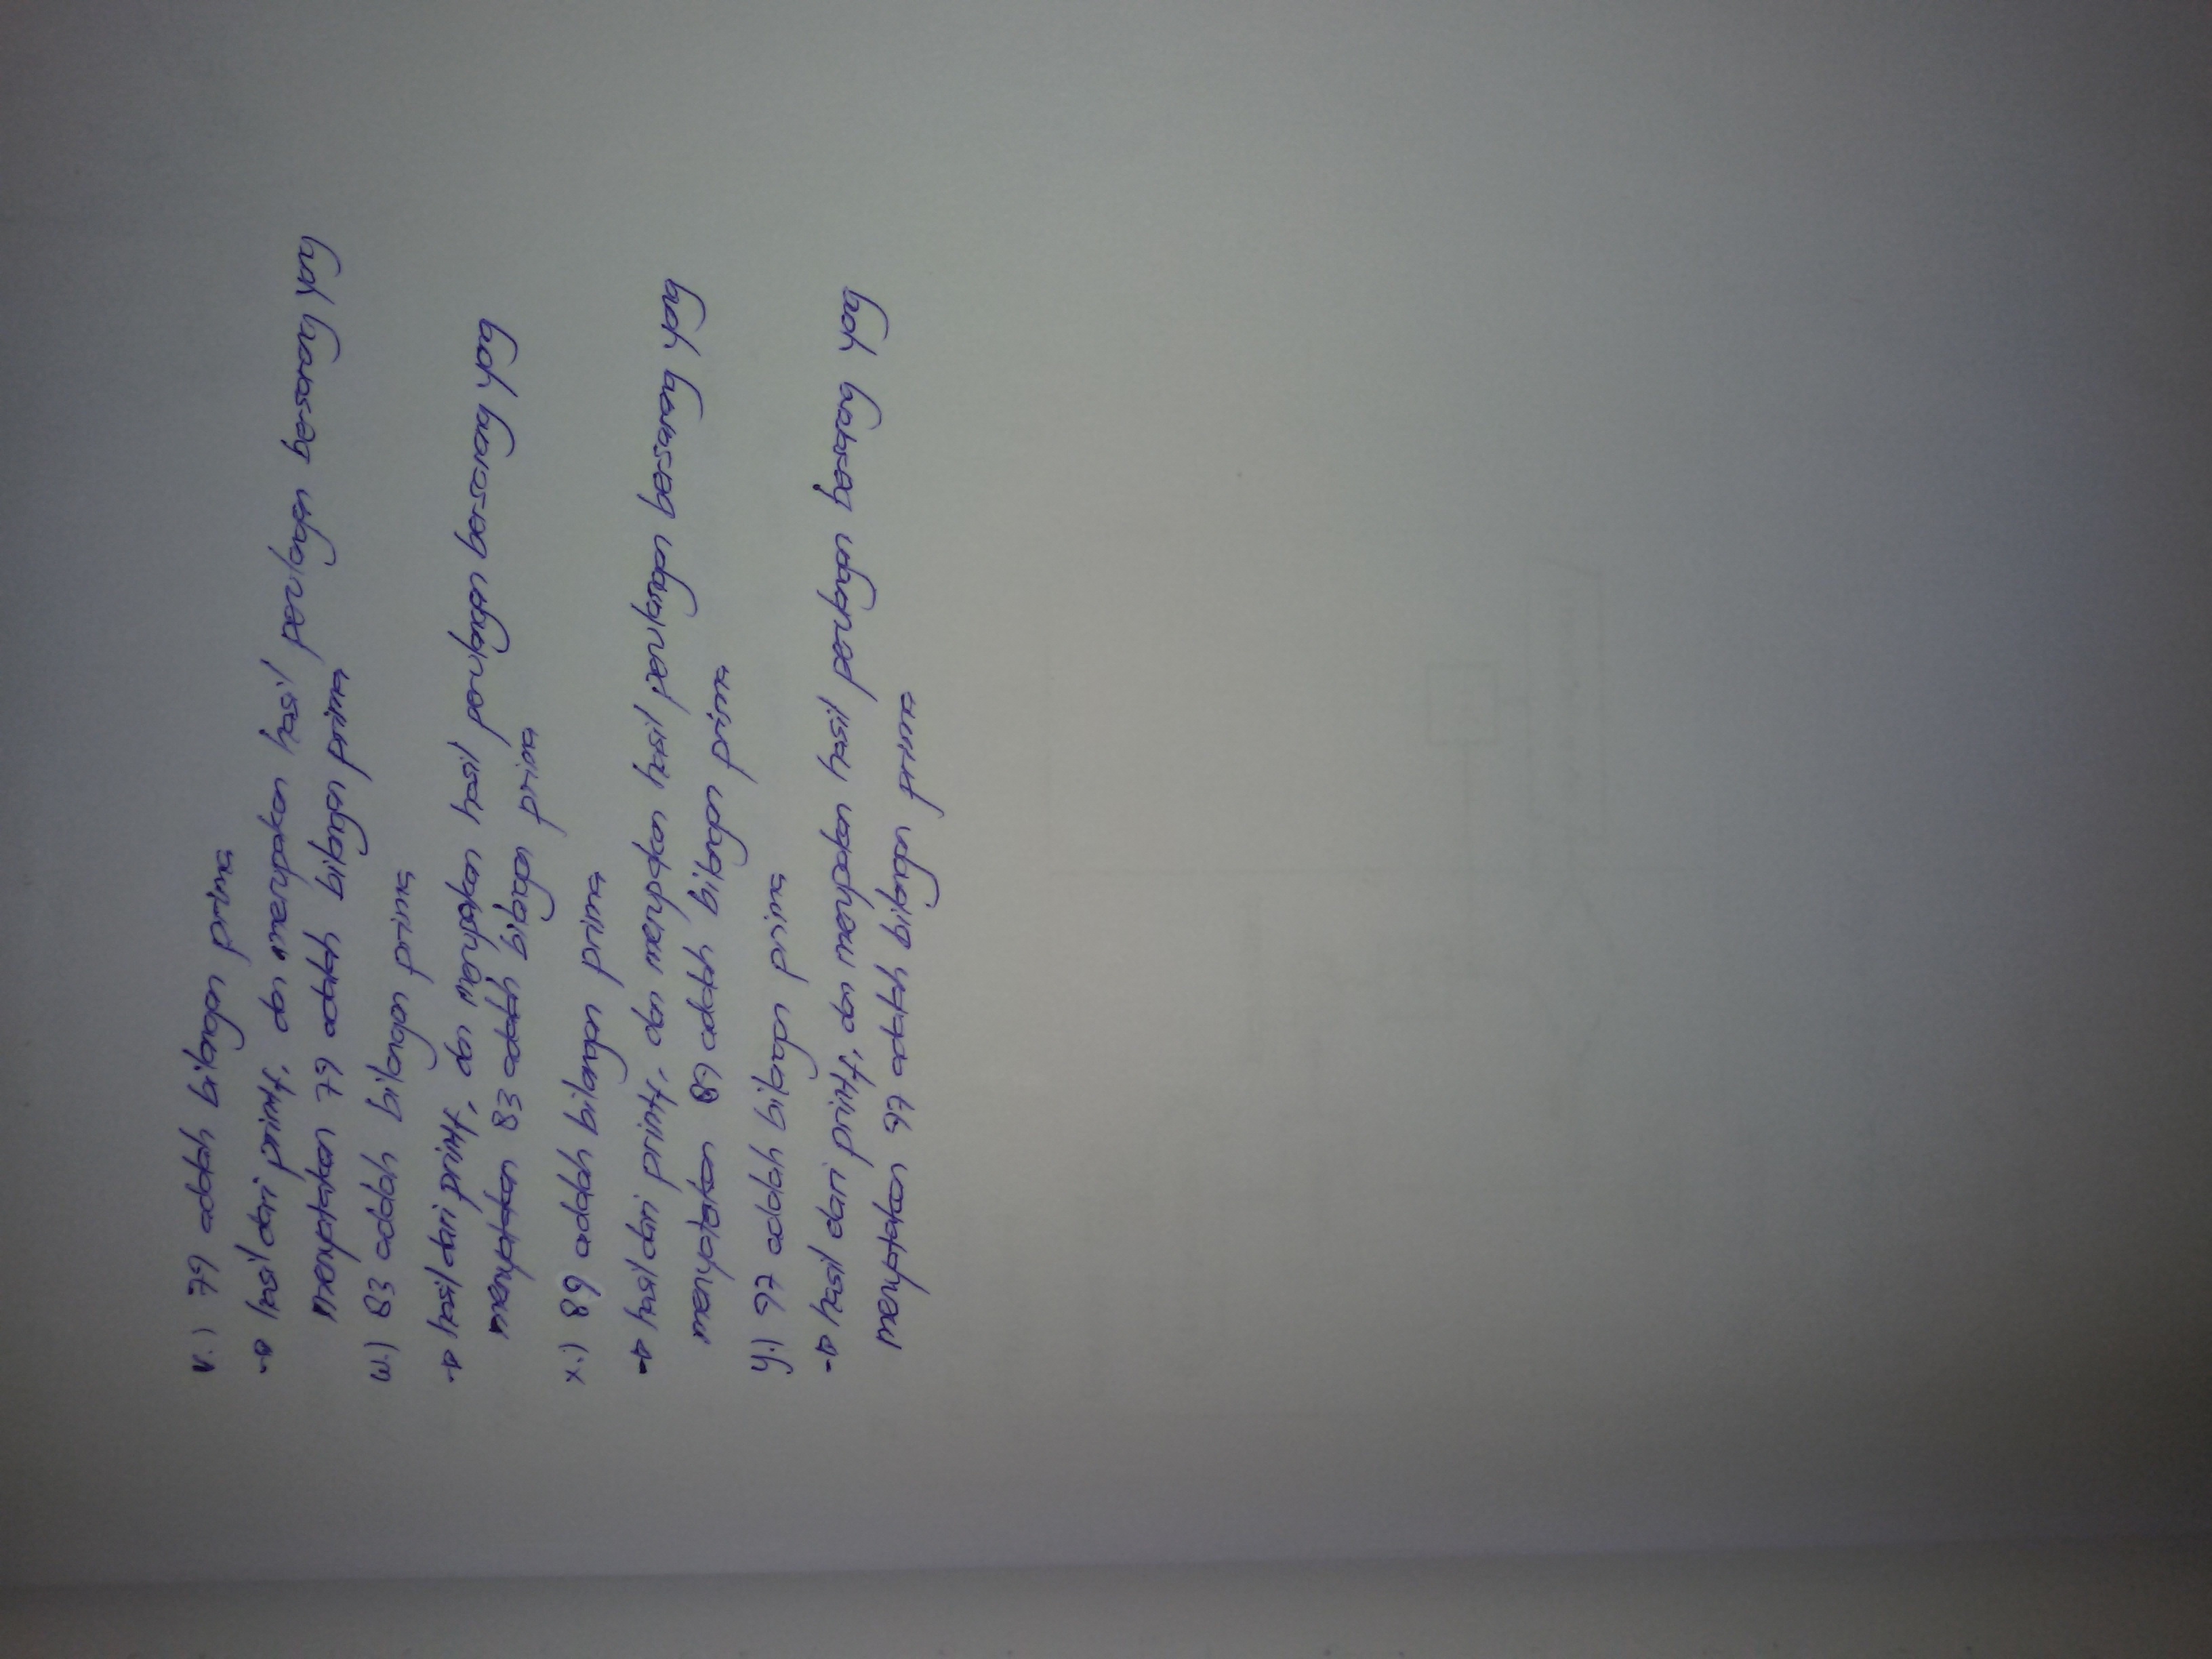 v.) 79 adalah bilangan prima
→ hasil dari printf, dan merupakan hasil perulangan bersarang yang
menyatakan 79 adalah bilangan prima
w.) 83 adalah bilangan prima
→ hasil dari printf, dan merupakan hasil perulangan bersarang yang
menyatakan 83 adalah bilangan prima
x.) 89 adalah bilangan prima
→ hasil dari printf, dan merupakan hasil perulangan bersarang yang
menyatakan 89 adalah bilangan prima
y.) 97 adalah bilangan prima
→ hasil dari printf, dan merupakan hasil perulangan bersarang yang
menyatakan 97 adalah bilangan prima